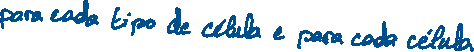 para cada tipo de célula e para cada célula